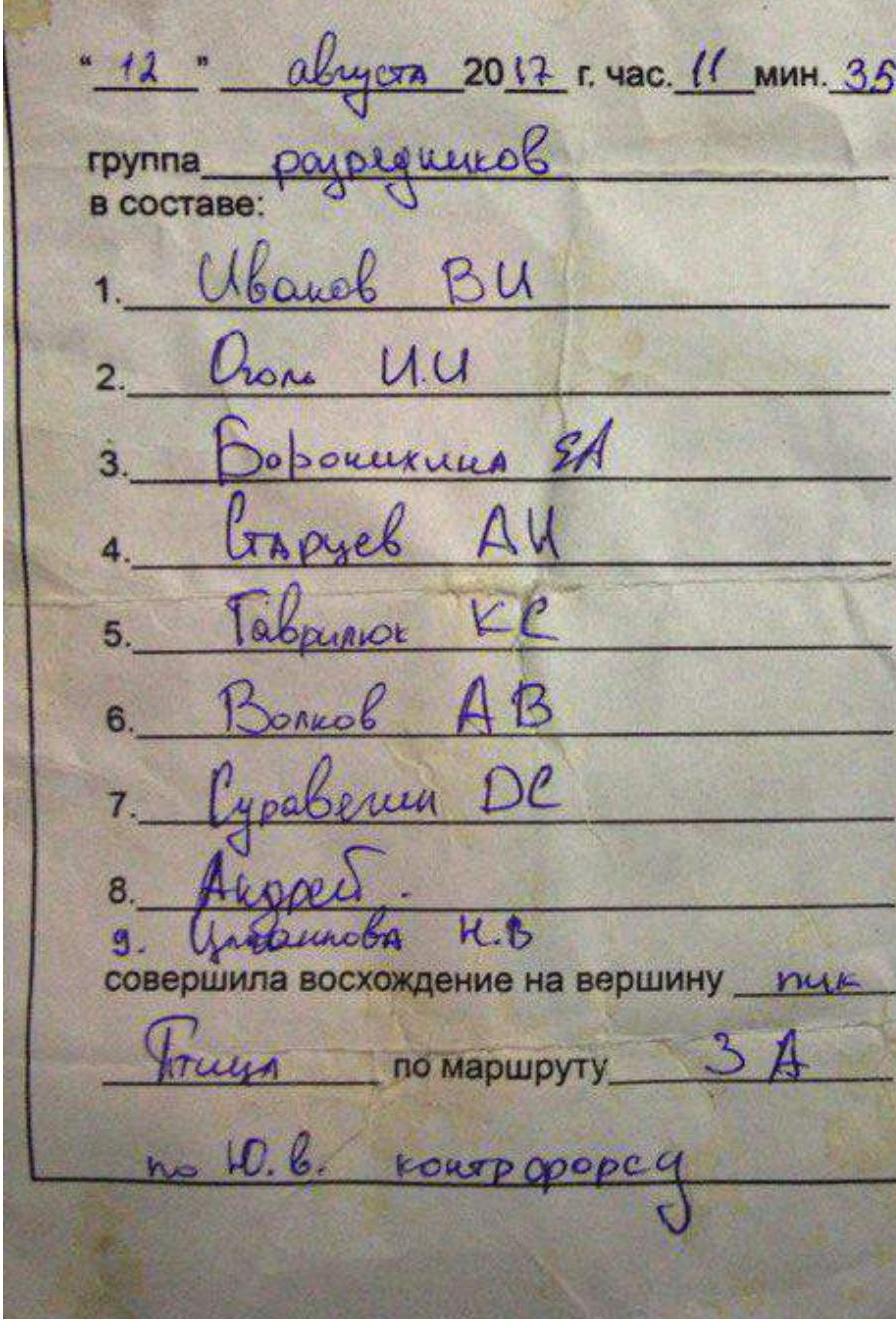 " 12 " августа 2017 г. час. 11 мин. 35
группа разрядников
в составе:
1. Иванов ВИ
2. Оголь И.И
3. Воронихина ЕА
4. Старцев АИ
5. Гаврилюк КС
6. Волков АВ
7. Суравегин DС
8. Андрей.
9. Н.В
совершила восхождение на вершину пик
Птица по маршруту 3 А
по Ю.в. контрфорсу